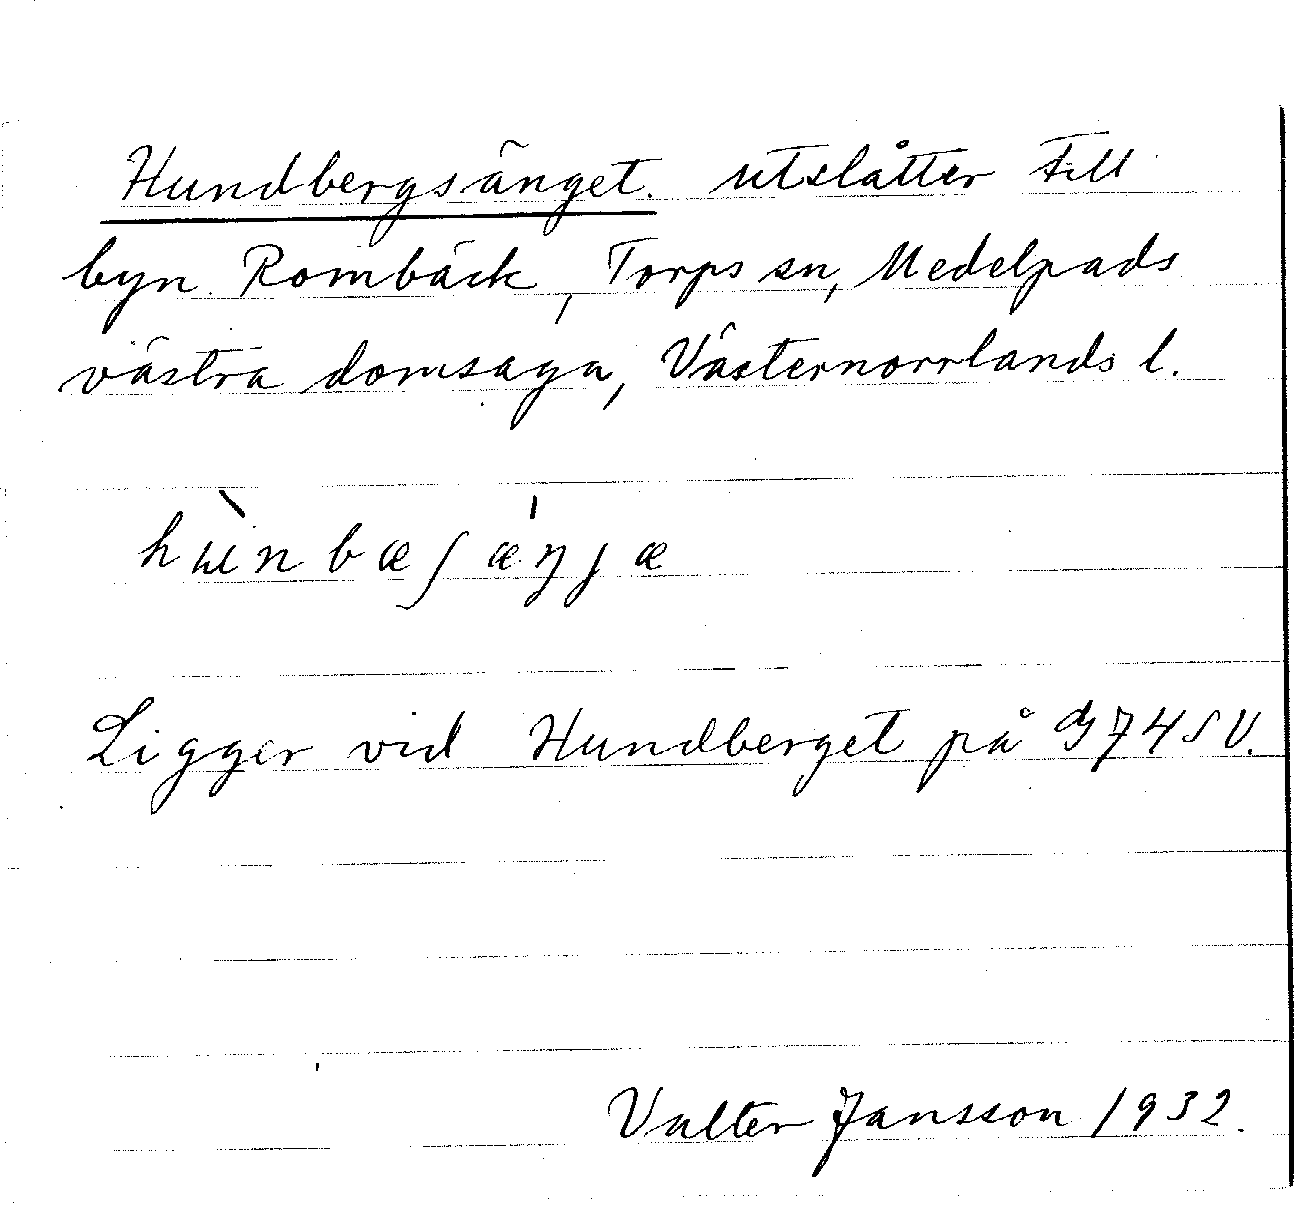 Hundbergsänget. utslåtter till
byn Rombäck, Torps sn, Medelpads
västra domsaga, Västernorrlands l.
hùnbæʃæ̍ŋʃæ
Ligger vid Hundberget på 974SV.
Valter Jansson 1932.